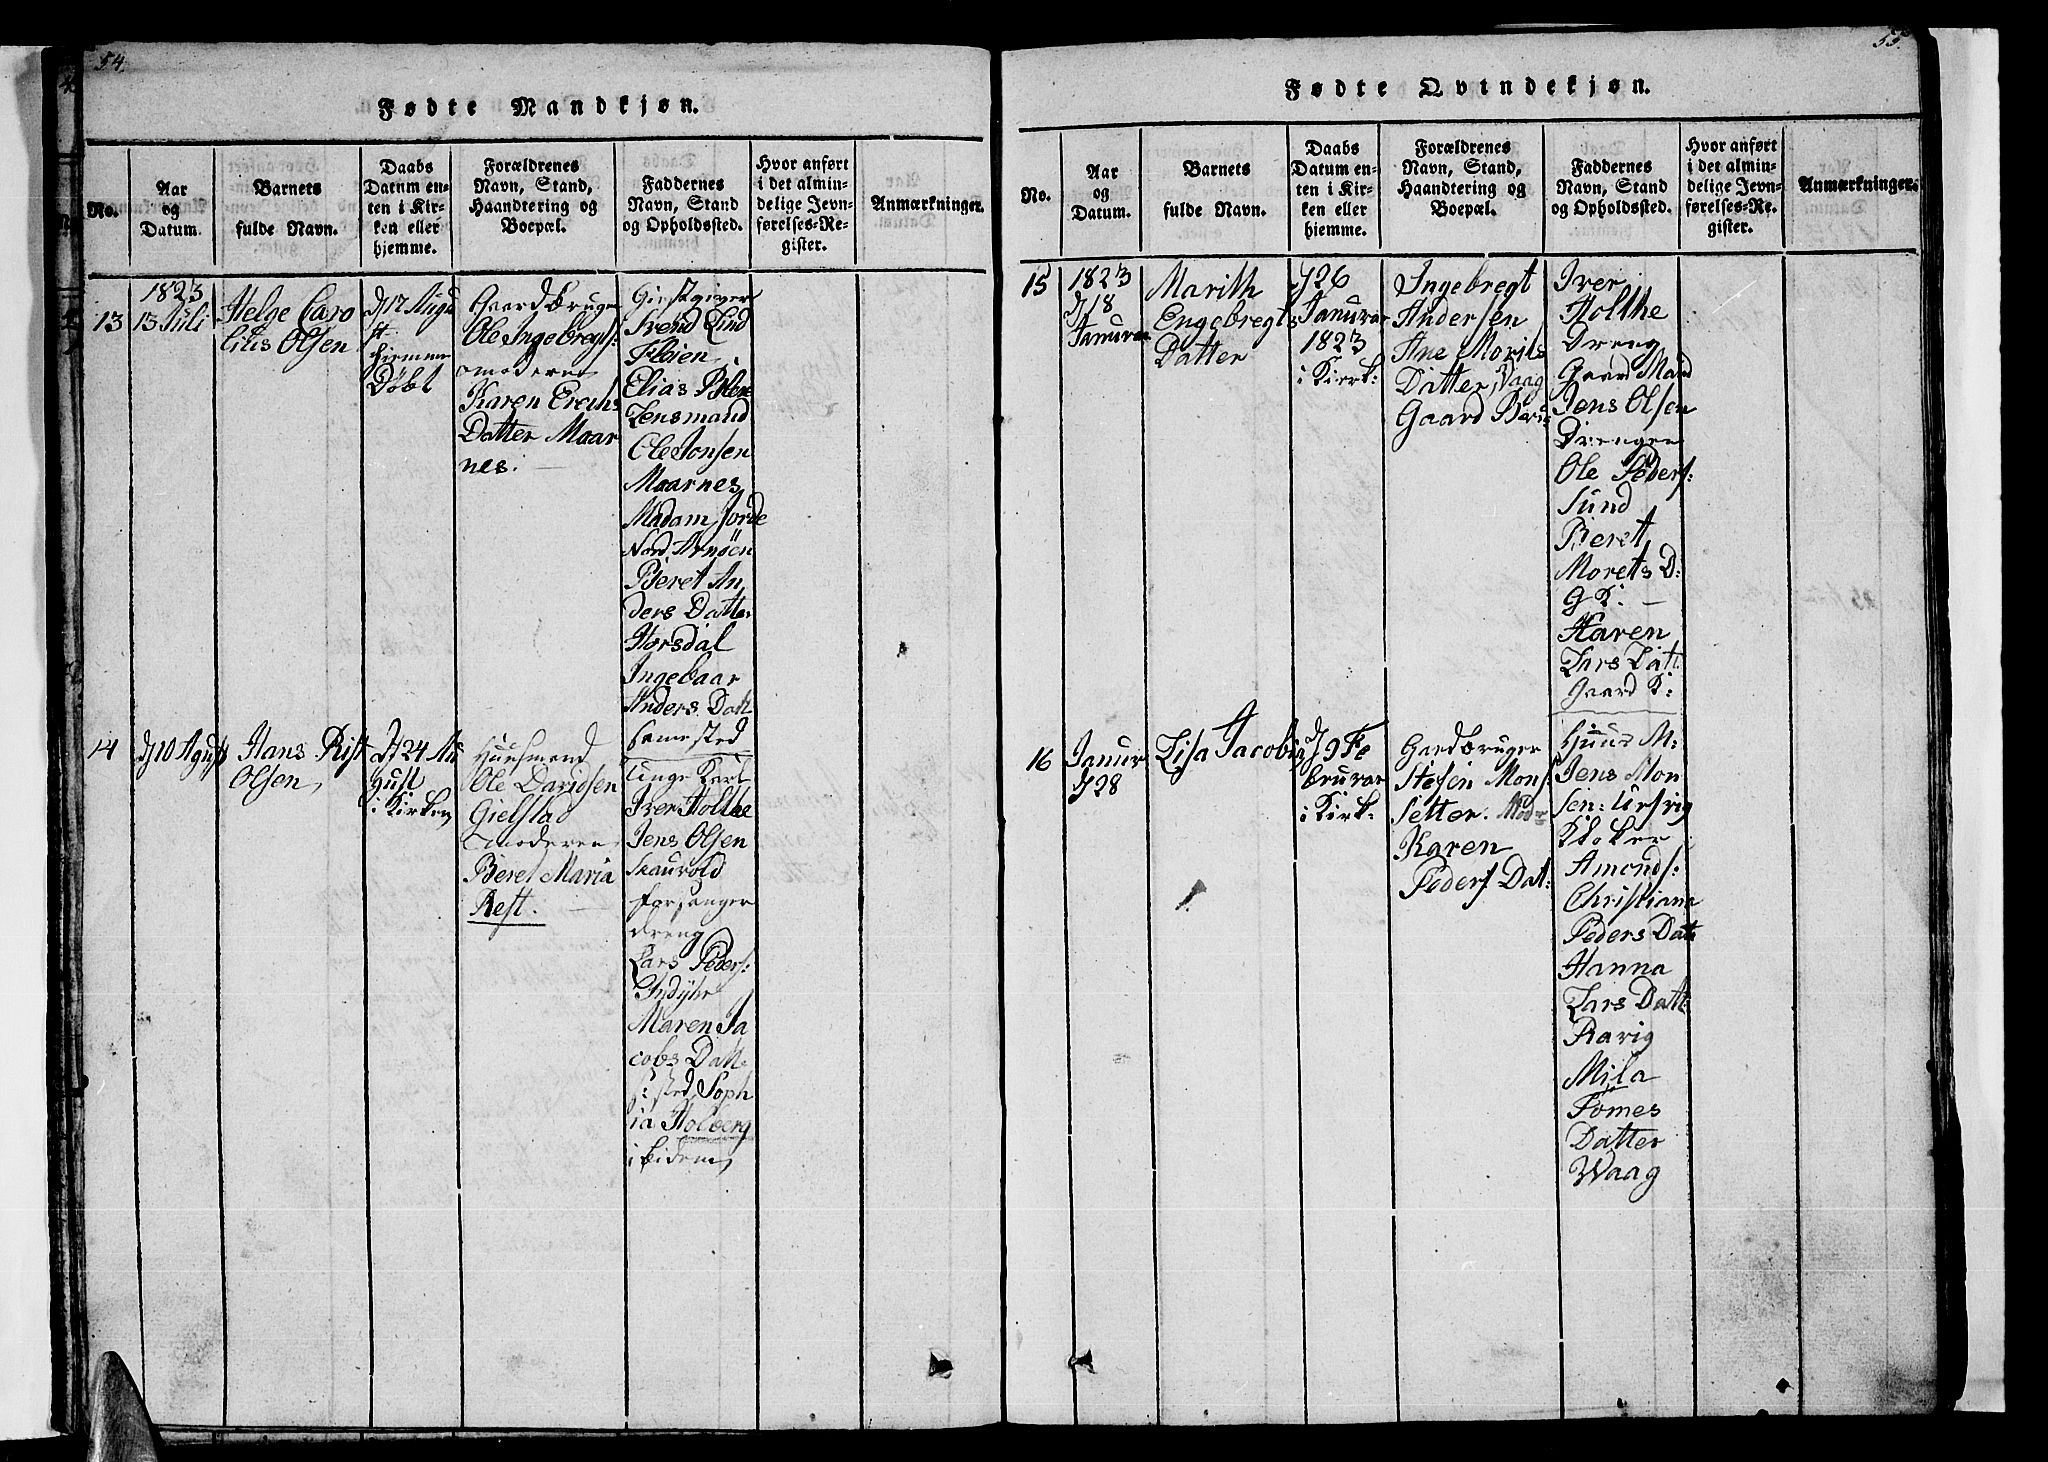 54.
Fødte Mandkjøn.
No.
Aar
og
Datum.
Barnets
fulde Navn.
Daabs
Datum en-
ten i Kir-
ken eller
hjemme.
Forældrenes
Navn, Stand,
Haandtering og
Boepæl.
Faddernes
Navn, Stand
og Opholdssted.
Hvor anført
i det almin-
delige Jevn-
førelses-Re-
gister.
Anmærkninger.
13
1823
13 Juli
Helge Caro
lius Olsen
D 17 Augu
st
hiemme
Döbt
Gaardbruger
Ole Ingebregts:
moderen
Karen Erichs
Datter Maar
nes.
Giestgiver
Svend Lind
Fløien
Elias
Lensmand
Ole Jonsen
Maarnes
Madam Jorde
Nord Arnöen
Beret An
ders Datter
Horsdal
Ingebaar
Anders Datt
samested
14
D 10 Agust
Hans Rist
Olsen
D 24 Au
gust
i Kirken
Huusmand
Ole Davidsen
Gielstad
moderen
Beret Maria
Rest.
unge Karl
Iver Holthe
Jens Olsen
Skauvold
forsanger
dreng
Lars Peders:
Indyhr
Maren Ja
cobs Datt
sted Soph
ia Holberg
ibidem
55.
Fødte Qvindekjøn.
No.
Aar
og
Datum.
Barnets
fulde Navn.
Daabs
Datum en-
ten i Kir-
ken eller
hjemme.
Forældrenes
Navn, Stand,
Haandtering og
Boepæl.
Faddernes
Navn, Stand
og Opholdssted.
Hvor anført
i det almin-
delige Jevn-
førelses-Re-
gister.
Anmærkninger.
15
1823
D 18
Januvar
Marith
Engebregts
Datter
D 26
Januvar
1823
i Kierk:
Ingebregt
Andersen
Ane Morits
Datter, Vaag
Gaard
Iver
Holthe
Dreng
Gaard Mand
Jens Olsen
Drengen
Ole Peders:
Sund
Beret
Morets D:
G K.
Karen
Lars Datt
Gaard K:
16
Januvr
D 28
Lisa Jacobin
D 9 Fe
bruvar
i Kirk:
Gardbruger
Stefen Mons
Setter. Mod
Karen
Peders Dat:
Huus M:
Jens Mon
sen: Ursvig
Kloker
Amonds:
Christiana
Peders Datt
Hanna
Lars Datt
Rarig
Mila
Tomes
Datter
Waag